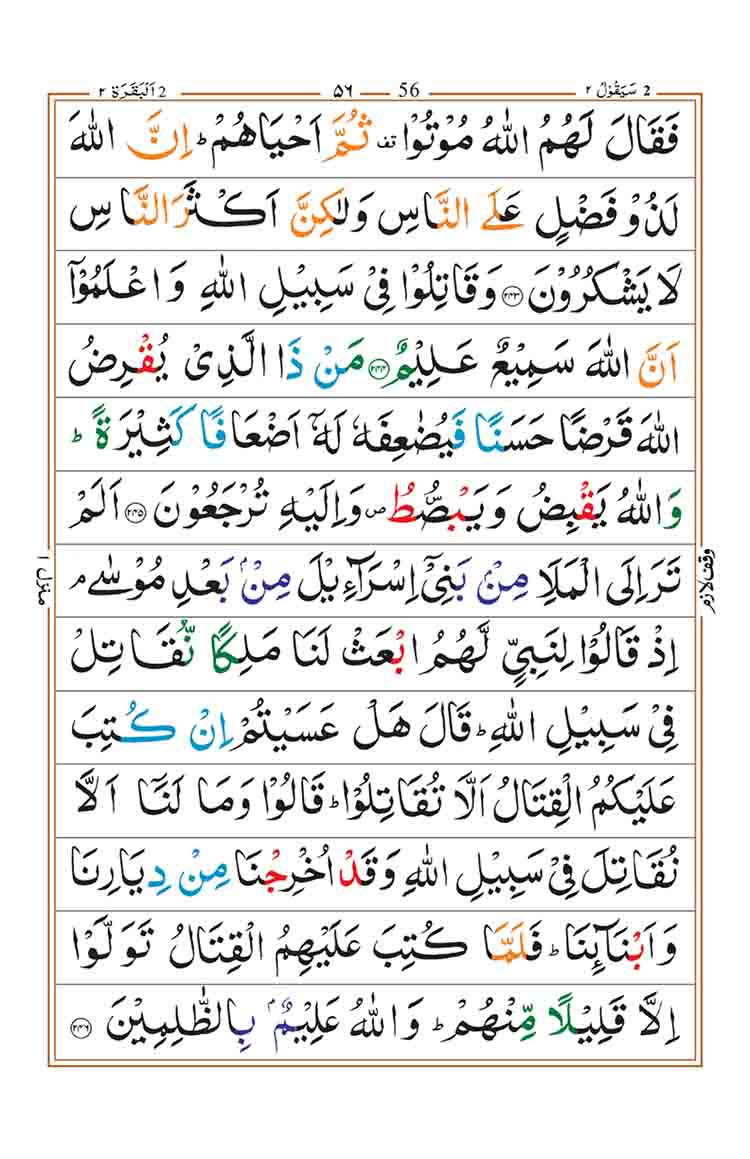 2 سَيَقُوْلُ ٢ 56 ٥٦ 2 اَلْبَقَرَة ٢
فَقَالَ لَهُمُ اللّٰهُ مُوْتُوْا ۫ ثُمَّ اَحْيَاهُمْ ؕ اِنَّ اللّٰهَ
لَذُوْ فَضْلٍ عَلَى النَّاسِ وَلٰكِنَّ اَكْثَرَ النَّاسِ
لَا يَشْكُرُوْنَ ﴿۲۴۳﴾ وَقَاتِلُوْا فِيْ سَبِيْلِ اللّٰهِ وَاعْلَمُوْۤا
اَنَّ اللّٰهَ سَمِيْعٌ عَلِيْمٌ ﴿۲۴۴﴾ مَنْ ذَا الَّذِيْ يُقْرِضُ
اللّٰهَ قَرْضًا حَسَنًا فَيُضٰعِفَهٗ لَهٗۤ اَضْعَافًا كَثِيْرَةً ؕ
وَاللّٰهُ يَقْبِضُ وَيَبْصُۜطُ ۪ وَاِلَيْهِ تُرْجَعُوْنَ ﴿۲۴۵﴾ اَلَمْ
تَرَ اِلَى الْمَلَاِ مِنْۢ بَنِيْۤ اِسْرَآءِيْلَ مِنْۢ بَعْدِ مُوْسٰى ۘ
اِذْ قَالُوْا لِنَبِيٍّ لَّهُمُ ابْعَثْ لَنَا مَلِكًا نُّقَاتِلْ
فِيْ سَبِيْلِ اللّٰهِ ؕ قَالَ هَلْ عَسَيْتُمْ اِنْ كُتِبَ
عَلَيْكُمُ الْقِتَالُ اَلَّا تُقَاتِلُوْا ؕ قَالُوْا وَمَا لَنَاۤ اَلَّا
نُقَاتِلَ فِيْ سَبِيْلِ اللّٰهِ وَقَدْ اُخْرِجْنَا مِنْ دِيَارِنَا
وَاَبْنَآئِنَا ؕ فَلَمَّا كُتِبَ عَلَيْهِمُ الْقِتَالُ تَوَلَّوْا
اِلَّا قَلِيْلًا مِّنْهُمْ ؕ وَاللّٰهُ عَلِيْمٌۢ بِالظّٰلِمِيْنَ ﴿۲۴۶﴾
وقف لازم
منزل ١